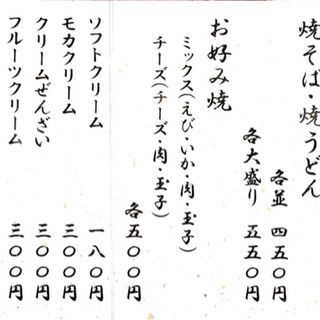 焼そば・焼うどん
各並 四五〇円
各大盛り 五五〇円
お好み焼
ミックス(えび・いか・肉・玉子)
チーズ(チーズ・肉・玉子)
各五〇〇円
ソフトクリーム 一八〇円
モカクリーム 三〇〇円
クリームぜんざい 三〇〇円
フルーツクリーム 三〇〇円